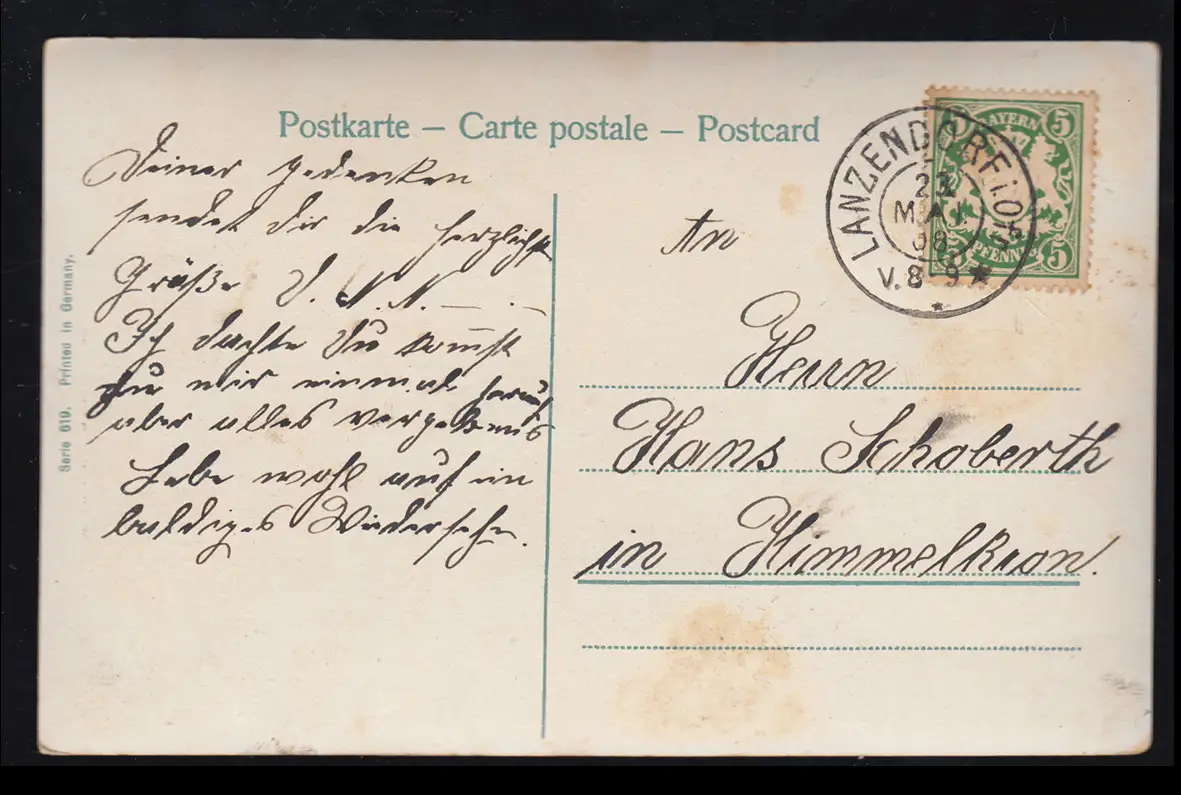 Postkarte – Carte postale – Postcard
Deiner gedenken
sendet dir die herzlichst
Grüße D. N. N. — . —
Ich dachte du kom̅st
zu mir einmal herauf
aber alles vergebens
Lebe wohl auf ein
baldiges Wiedersehn.
Serie 619. Printed in Germany.
An
Herrn
Hans Schoberth
in Himmelkron.
LANZENDORF i. Ofr.
MAI
08
V. 8 9
BAYERN
5 5
PFENNIG
5 5